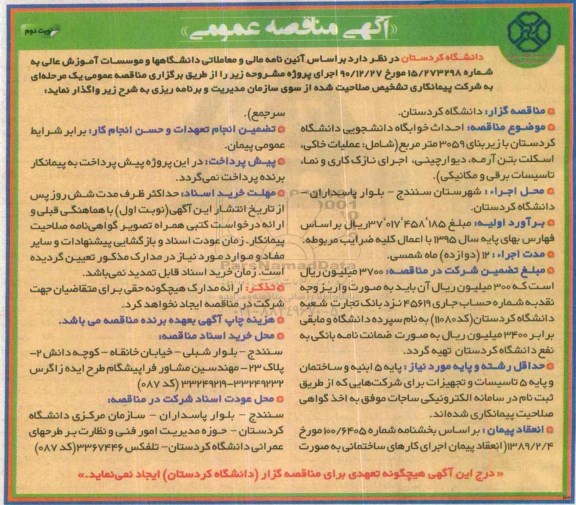 «آگهی مناقصه عمومی»
نوبت دوم
دانشگاه کردستان در نظر دارد بر اساس آئین نامه مالی و معاملاتی دانشگاهها و موسسات آموزش عالی به
شماره ۱۵/۲۷۳۲۹۸ مورخ ۹۰/۱۲/۲۷ اجرای پروژه مشروحه زیر را از طریق برگزاری مناقصه عمومی یک مرحله‌ای
به شرکت پیمانکاری تشخیص صلاحیت شده از سوی سازمان مدیریت و برنامه ریزی به شرح زیر واگذار نماید:
مناقصه گزار: دانشگاه کردستان.
موضوع مناقصه: احداث خوابگاه دانشجویی دانشگاه
کردستان با زیربنای ۳۰۵۹ متر مربع (شامل: عملیات خاکی،
اسکلت بتن آرمه، دیوارچینی، اجرای نازک کاری و نما،
تاسیسات برقی و مکانیکی).
محل اجراء: شهرستان سنندج - بلوار پاسداران -
دانشگاه کردستان.
برآورد اولیه: مبلغ ۳۷٬۰۱۷٬۴۵۸٬۱۸۵ ریال براساس
فهارس بهای پایه سال ۱۳۹۵ با اعمال کلیه ضرایب مربوطه.
مدت اجراء: ۱۲ (دوازده) ماه شمسی.
مبلغ تضمین شرکت در مناقصه: ۳۷۰۰ میلیون ریال
است که ۳۰۰ میلیون ریال آن باید به صورت واریز وجه
نقد به شماره حساب جاری ۴۵۶۱۹ نزد بانک تجارت شعبه
دانشگاه کردستان (کد۱۱۰۸۰) به نام سپرده دانشگاه و مابقی
برابر ۳۴۰۰ میلیون ریال به صورت ضمانت نامه بانکی به
نفع دانشگاه کردستان تهیه گردد.
حداقل رشته و پایه مورد نیاز: پایه ۵ ابنیه و ساختمان
و پایه ۵ تاسیسات و تجهیزات برای شرکت‌هایی که از طریق
ثبت نام در سامانه الکترونیکی ساجات موفق به اخذ گواهی
صلاحیت پیمانکاری شده‌اند.
انعقاد پیمان: بر اساس بخشنامه شماره ۱۰۰/۶۴۰۵ مورخ
۱۳۸۹/۲/۴ (انعقاد پیمان اجرای کارهای ساختمانی به صورت
سرجمع).
تضمین انجام تعهدات و حسن انجام کار: برابر شرایط
عمومی پیمان.
پیش پرداخت: در این پروژه پیش پرداخت به پیمانکار
برنده پرداخت نمی‌گردد.
مهلت خرید اسناد: حداکثر ظرف مدت شش روز پس
از تاریخ انتشار این آگهی (نوبت اول) با هماهنگی قبلی و
ارائه درخواست کتبی همراه تصویر گواهی‌نامه صلاحیت
پیمانکار. زمان عودت اسناد و بازگشایی پیشنهادات و سایر
مفاد و موارد مورد نیاز در مدارک مذکور تعیین گردیده
است. زمان خرید اسناد قابل تمدید نمی‌باشد.
تذکر: ارائه مدارک هیچگونه حقی برای متقاضیان جهت
شرکت در مناقصه ایجاد نخواهد کرد.
هزینه چاپ آگهی بعهده برنده مناقصه می باشد.
محل خرید اسناد مناقصه:
سنندج - بلوار شبلی - خیابان خانقاه - کوچه دانش ۲-
پلاک ۲۳ - مهندسین مشاور فرا پیشگام طرح ایده زاگرس
۳۳۲۴۹۲۱۹-۳۳۲۴۹۲۳۲ (کد ۰۸۷)
محل عودت اسناد شرکت در مناقصه:
سنندج - بلوار پاسداران - سازمان مرکزی دانشگاه
کردستان - حوزه مدیریت امور فنی و نظارت بر طرحهای
عمرانی دانشگاه کردستان- تلفکس ۳۳۶۷۴۴۶ (کد ۰۸۷)
«درج این آگهی هیچگونه تعهدی برای مناقصه گزار (دانشگاه کردستان) ایجاد نمی‌نماید.»
ParsNamadData